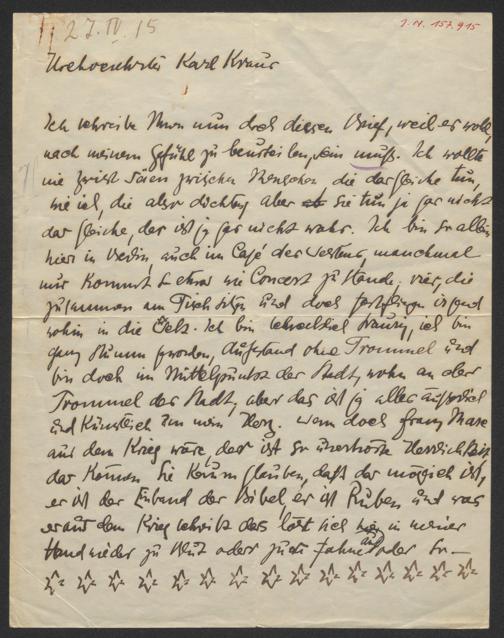 27. IV 15
I.N. 157.915
Urehverehrter Karl Kraus
Ich schreibe Ihnen nun doch diesen Brief, weil er wohl,
nach meinem Gefühl zu beurteilen, sein muß. Ich wollte
nie Zwist säen zwischen Menschen, die das gleiche tun,
wie ich, die also dichten, aber sie tun ja gar nicht
das gleiche, das ist ja gar nicht wahr. Ich bin so allein
hier in Berlin, auch im Café des Westens, manchmal
nur kommt so etwas wie Concert zu Stande, vier, die
zusammen am Tisch sitzen und doch fortfliegen irgend
wohin in die Welt. Ich bin schrecklich traurig, ich bin
ganz stumm geworden, Aufstand ohne Trommel und
bin doch im Mittelpunkt der Stadt, wohn an der
Trommel der Stadt, aber das ist ja alles äußerlich
und künstlich mein Herz. Wenn doch Franz Marc
aus dem Krieg wäre, der ist so unerhörte Herrlichkeit
das können Sie kaum glauben, daß das möglich ist,
er ist der Einband der Bibel er ist Ruben und was
er aus dem Krieg schreibt das löst sich in meiner
Hand wieder zu Blut oder zur Fahne auf oder so —